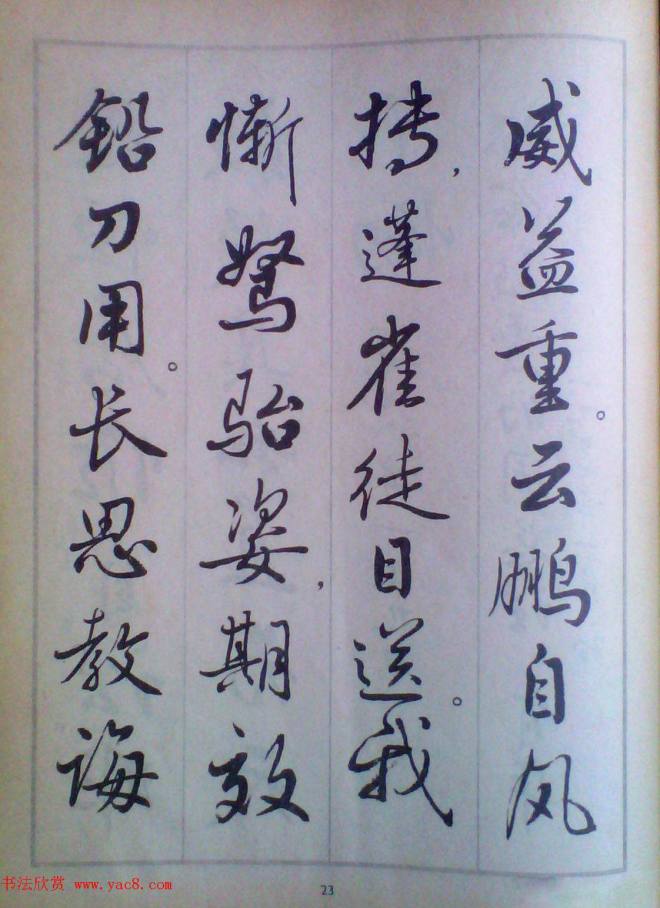 威益重。云鹏自风
抟，蓬雀徒目送。我
惭驽骀姿，期效
铅刀用。长思教诲
23
书法欣赏 www.yac8.com